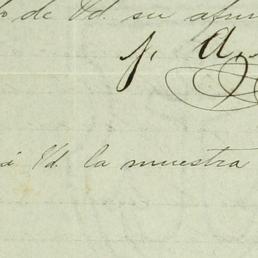 de Vd. su afm
p. A.
Vd. la muestra